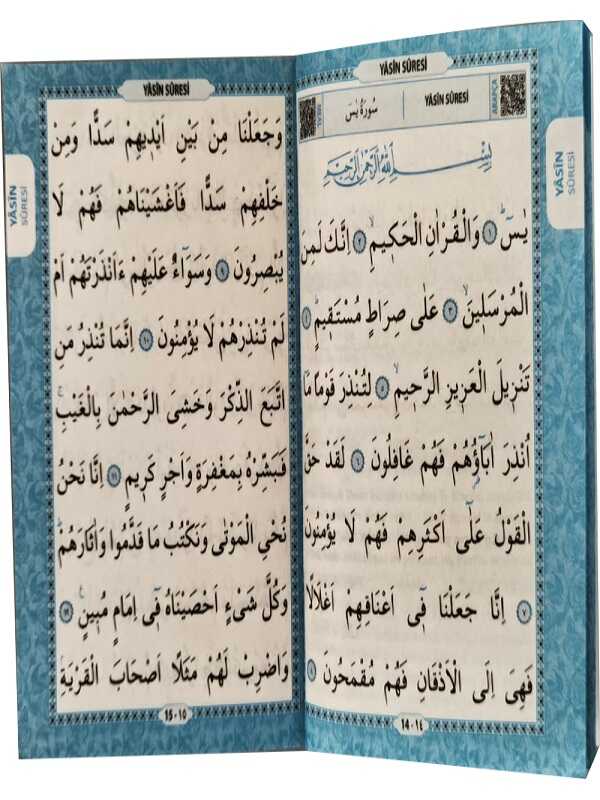 YÂSÎN SÛRESİ
ARAPÇA
YÂSÎN SÛRESİ
سُورَةُ يٰسٓ
بِسْمِ اللّٰهِ الرَّحْمٰنِ الرَّحِيمِ
يٰسٓ ۚ ﴿١﴾ وَالْقُرْاٰنِ الْحَكٖيمِۙ ﴿٢﴾ اِنَّكَ لَمِنَ
الْمُرْسَلٖينَۙ ﴿٣﴾ عَلٰى صِرَاطٍ مُسْتَقٖيمٍؕ ﴿٤﴾
تَنْزٖيلَ الْعَزٖيزِ الرَّحٖيمِۙ ﴿٥﴾ لِتُنْذِرَ قَوْمًا مَٓا
اُنْذِرَ اٰبَٓاؤُ۬هُمْ فَهُمْ غَافِلُونَ ﴿٦﴾ لَقَدْ حَقَّ
الْقَوْلُ عَلٰٓى اَكْثَرِهِمْ فَهُمْ لَا يُؤْمِنُونَ
﴿٧﴾ اِنَّا جَعَلْنَا فٖٓى اَعْنَاقِهِمْ اَغْلَالًا
فَهِىَ اِلَى الْاَذْقَانِ فَهُمْ مُقْمَحُونَ ﴿٨﴾
14 - ١٤
YÂSÎN
SÛRESİ
YÂSÎN SÛRESİ
وَجَعَلْنَا مِنْ بَيْنِ اَيْدٖيهِمْ سَدًّا وَمِنْ
خَلْفِهِمْ سَدًّا فَاَغْشَيْنَاهُمْ فَهُمْ لَا
يُبْصِرُونَ ﴿٩﴾ وَسَوَٓاءٌ عَلَيْهِمْ ءَاَنْذَرْتَهُمْ اَمْ
لَمْ تُنْذِرْهُمْ لَا يُؤْمِنُونَ ﴿١٠﴾ اِنَّمَا تُنْذِرُ مَنِ
اتَّبَعَ الذِّكْرَ وَخَشِىَ الرَّحْمٰنَ بِالْغَيْبِۚ
فَبَشِّرْهُ بِمَغْفِرَةٍ وَاَجْرٍ كَرٖيمٍ ﴿١١﴾ اِنَّا نَحْنُ
نُحْيِ الْمَوْتٰى وَنَكْتُبُ مَا قَدَّمُوا وَاٰثَارَهُمْؕ
وَكُلَّ شَىْءٍ اَحْصَيْنَاهُ فٖٓى اِمَامٍ مُبٖينٍ۟ ﴿١٢﴾
وَاضْرِبْ لَهُمْ مَثَلًا اَصْحَابَ الْقَرْيَةِۘ
15 - ١٥
YÂSÎN
SÛRESİ